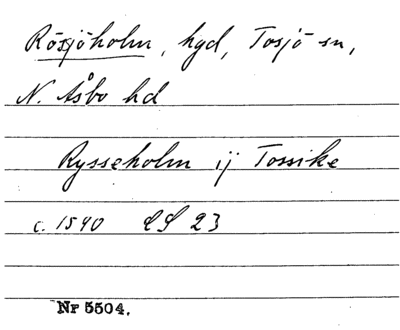 Rösjöholm, hgd, Tosjö sn,
N. Åsbo hd
Rysseholm ij Tossike
c. 1540 LS 23
Nr 5504.